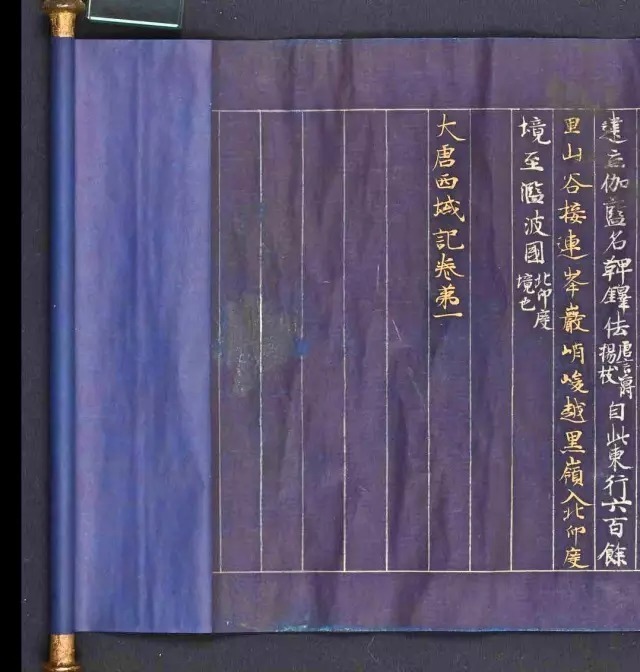 建立伽藍名鞞鐸佉唐言爵楊枝自此東行六百餘
里山谷接連峯巖峭峻越黑嶺入北印度
境至濫波國北印度境也
大唐西域記卷第一